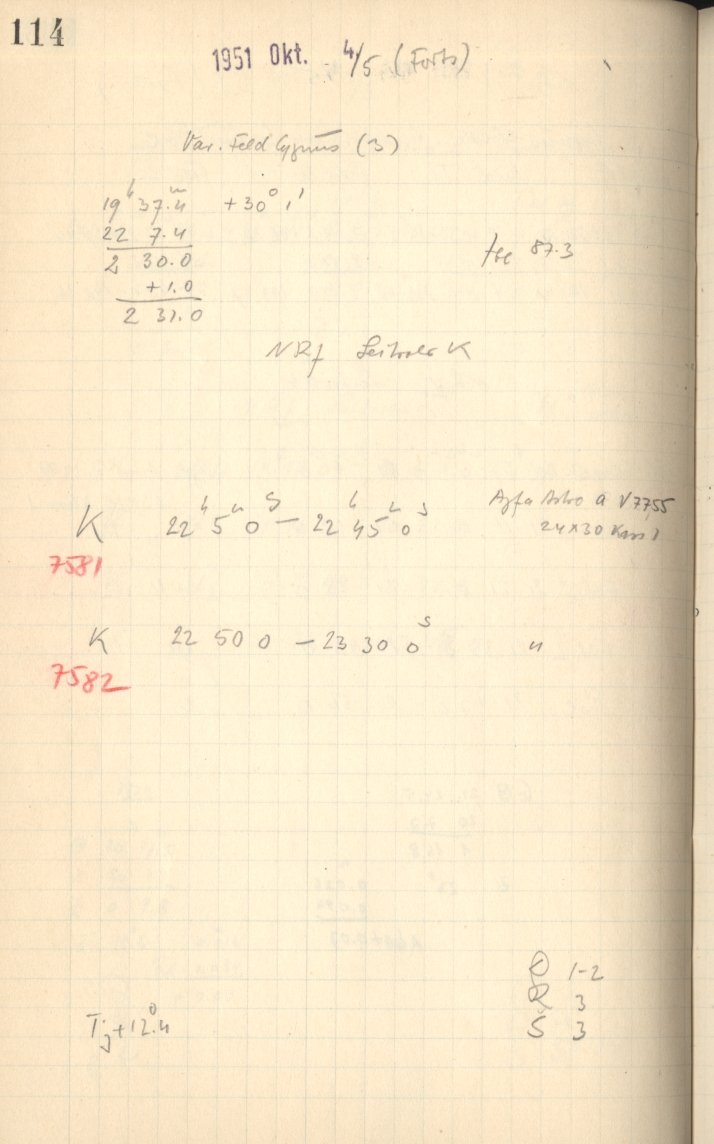 114
1951 Okt. 4/5 (Forts)
Var. Feld Cygnus (3)
19h 37.m4 +30° 1'
22 7.4
2 30.0
+1.0
2 31.0
87.3
K 22h 5m 0s – 22h 45m 0s
Agfa Astro a V7755
24x30
7581
K 22 50 0 – 23 30 0s "
7582
1-2
R 3
S 3
+12°.4